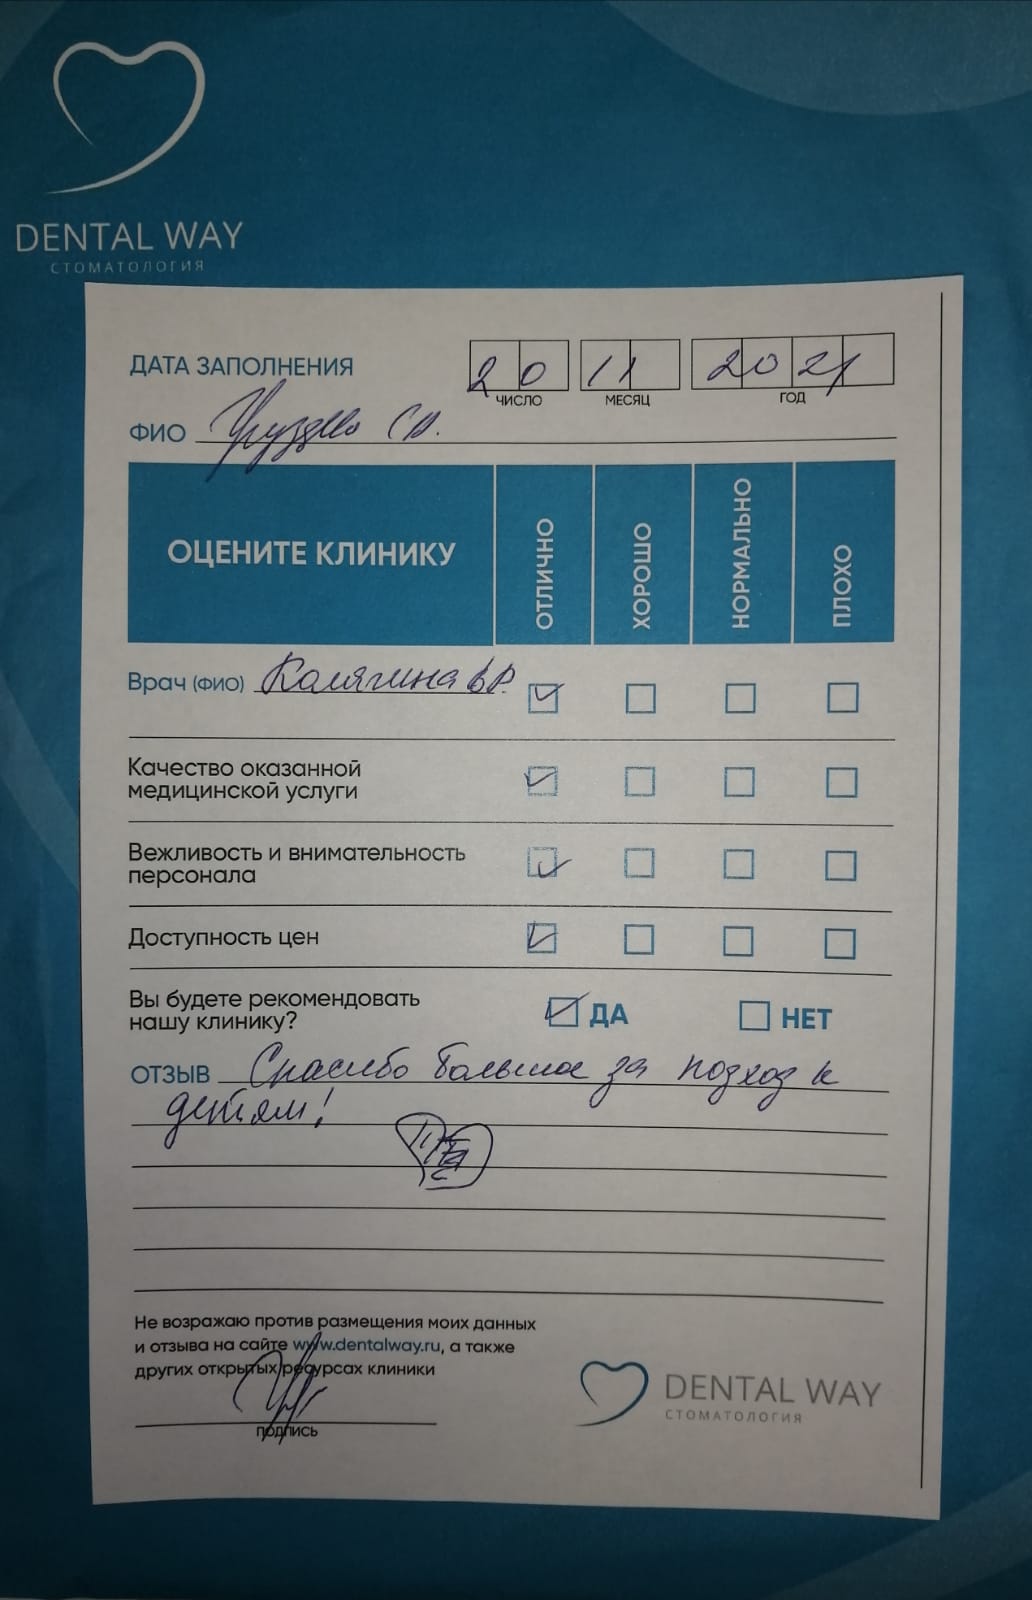 DENTAL WAY
СТОМАТОЛОГИЯ
ДАТА ЗАПОЛНЕНИЯ 20 11 2021
ЧИСЛО МЕСЯЦ ГОД
ФИО
ОЦЕНИТЕ КЛИНИКУ ОТЛИЧНО ХОРОШО НОРМАЛЬНО ПЛОХО
Врач (ФИО) Калягина В.Р.
Качество оказанной
медицинской услуги
Вежливость и внимательность
персонала
Доступность цен
Вы будете рекомендовать
нашу клинику? ДА НЕТ
ОТЗЫВ Спасибо большое за подход к
детям!
Не возражаю против размещения моих данных
и отзыва на сайте www.dentalway.ru, а также
других открытых ресурсах клиники
подпись
DENTAL WAY
СТОМАТОЛОГИЯ